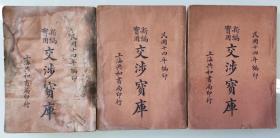 民國十四年編印
新編
實用
交涉寶庫
上海共和書局印行
民國十四年編印
新編
實用
交涉寶庫
上海共和書局印行
民國十四年編印
新編
實用
交涉寶庫
上海共和書局印行